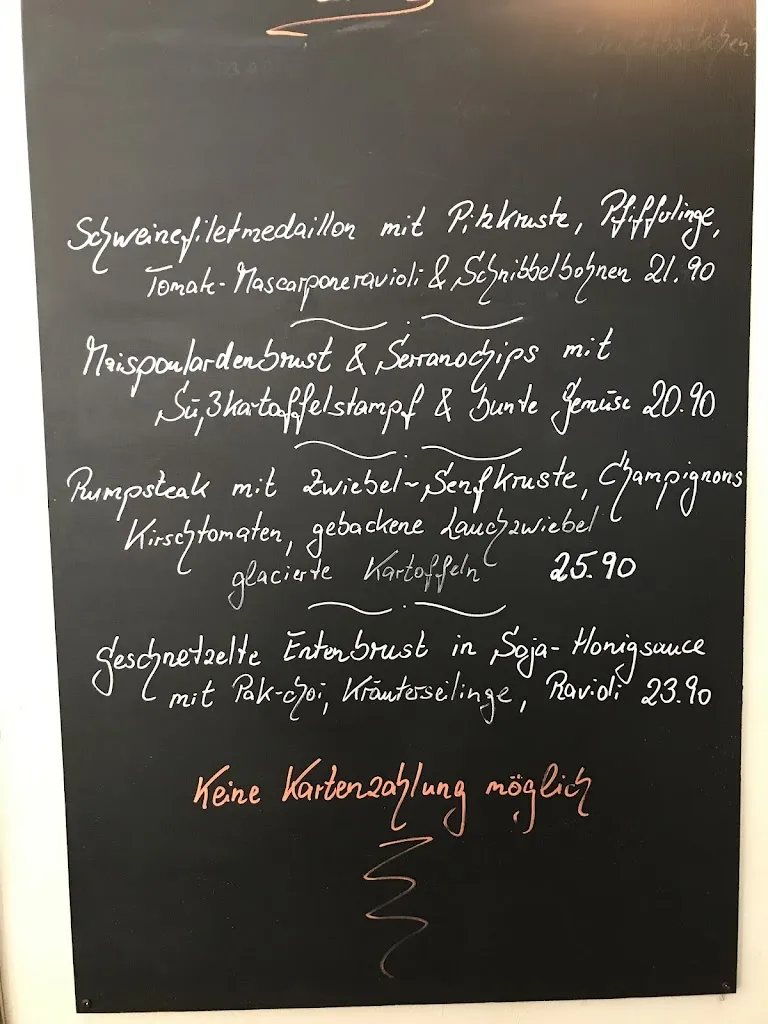 Schweinefiletmedaillon mit Pilzkruste, Pfifferlinge,
Tomate-Mascarponeravioli & Schnibbelbohnen 21.90
Maispoulardenbrust & Serranochips mit
Süßkartoffelstampf & bunte Gemüse 20.90
Rumpsteak mit Zwiebel-Senfkruste, Champignons
Kirschtomaten, gebackene Lauchzwiebel
glacierte Kartoffeln 25.90
Geschnetzelte Entenbrust in Soja-Honigsauce
mit Pak-choi, Kräuterseilinge, Ravioli 23.90
Keine Kartenzahlung möglich